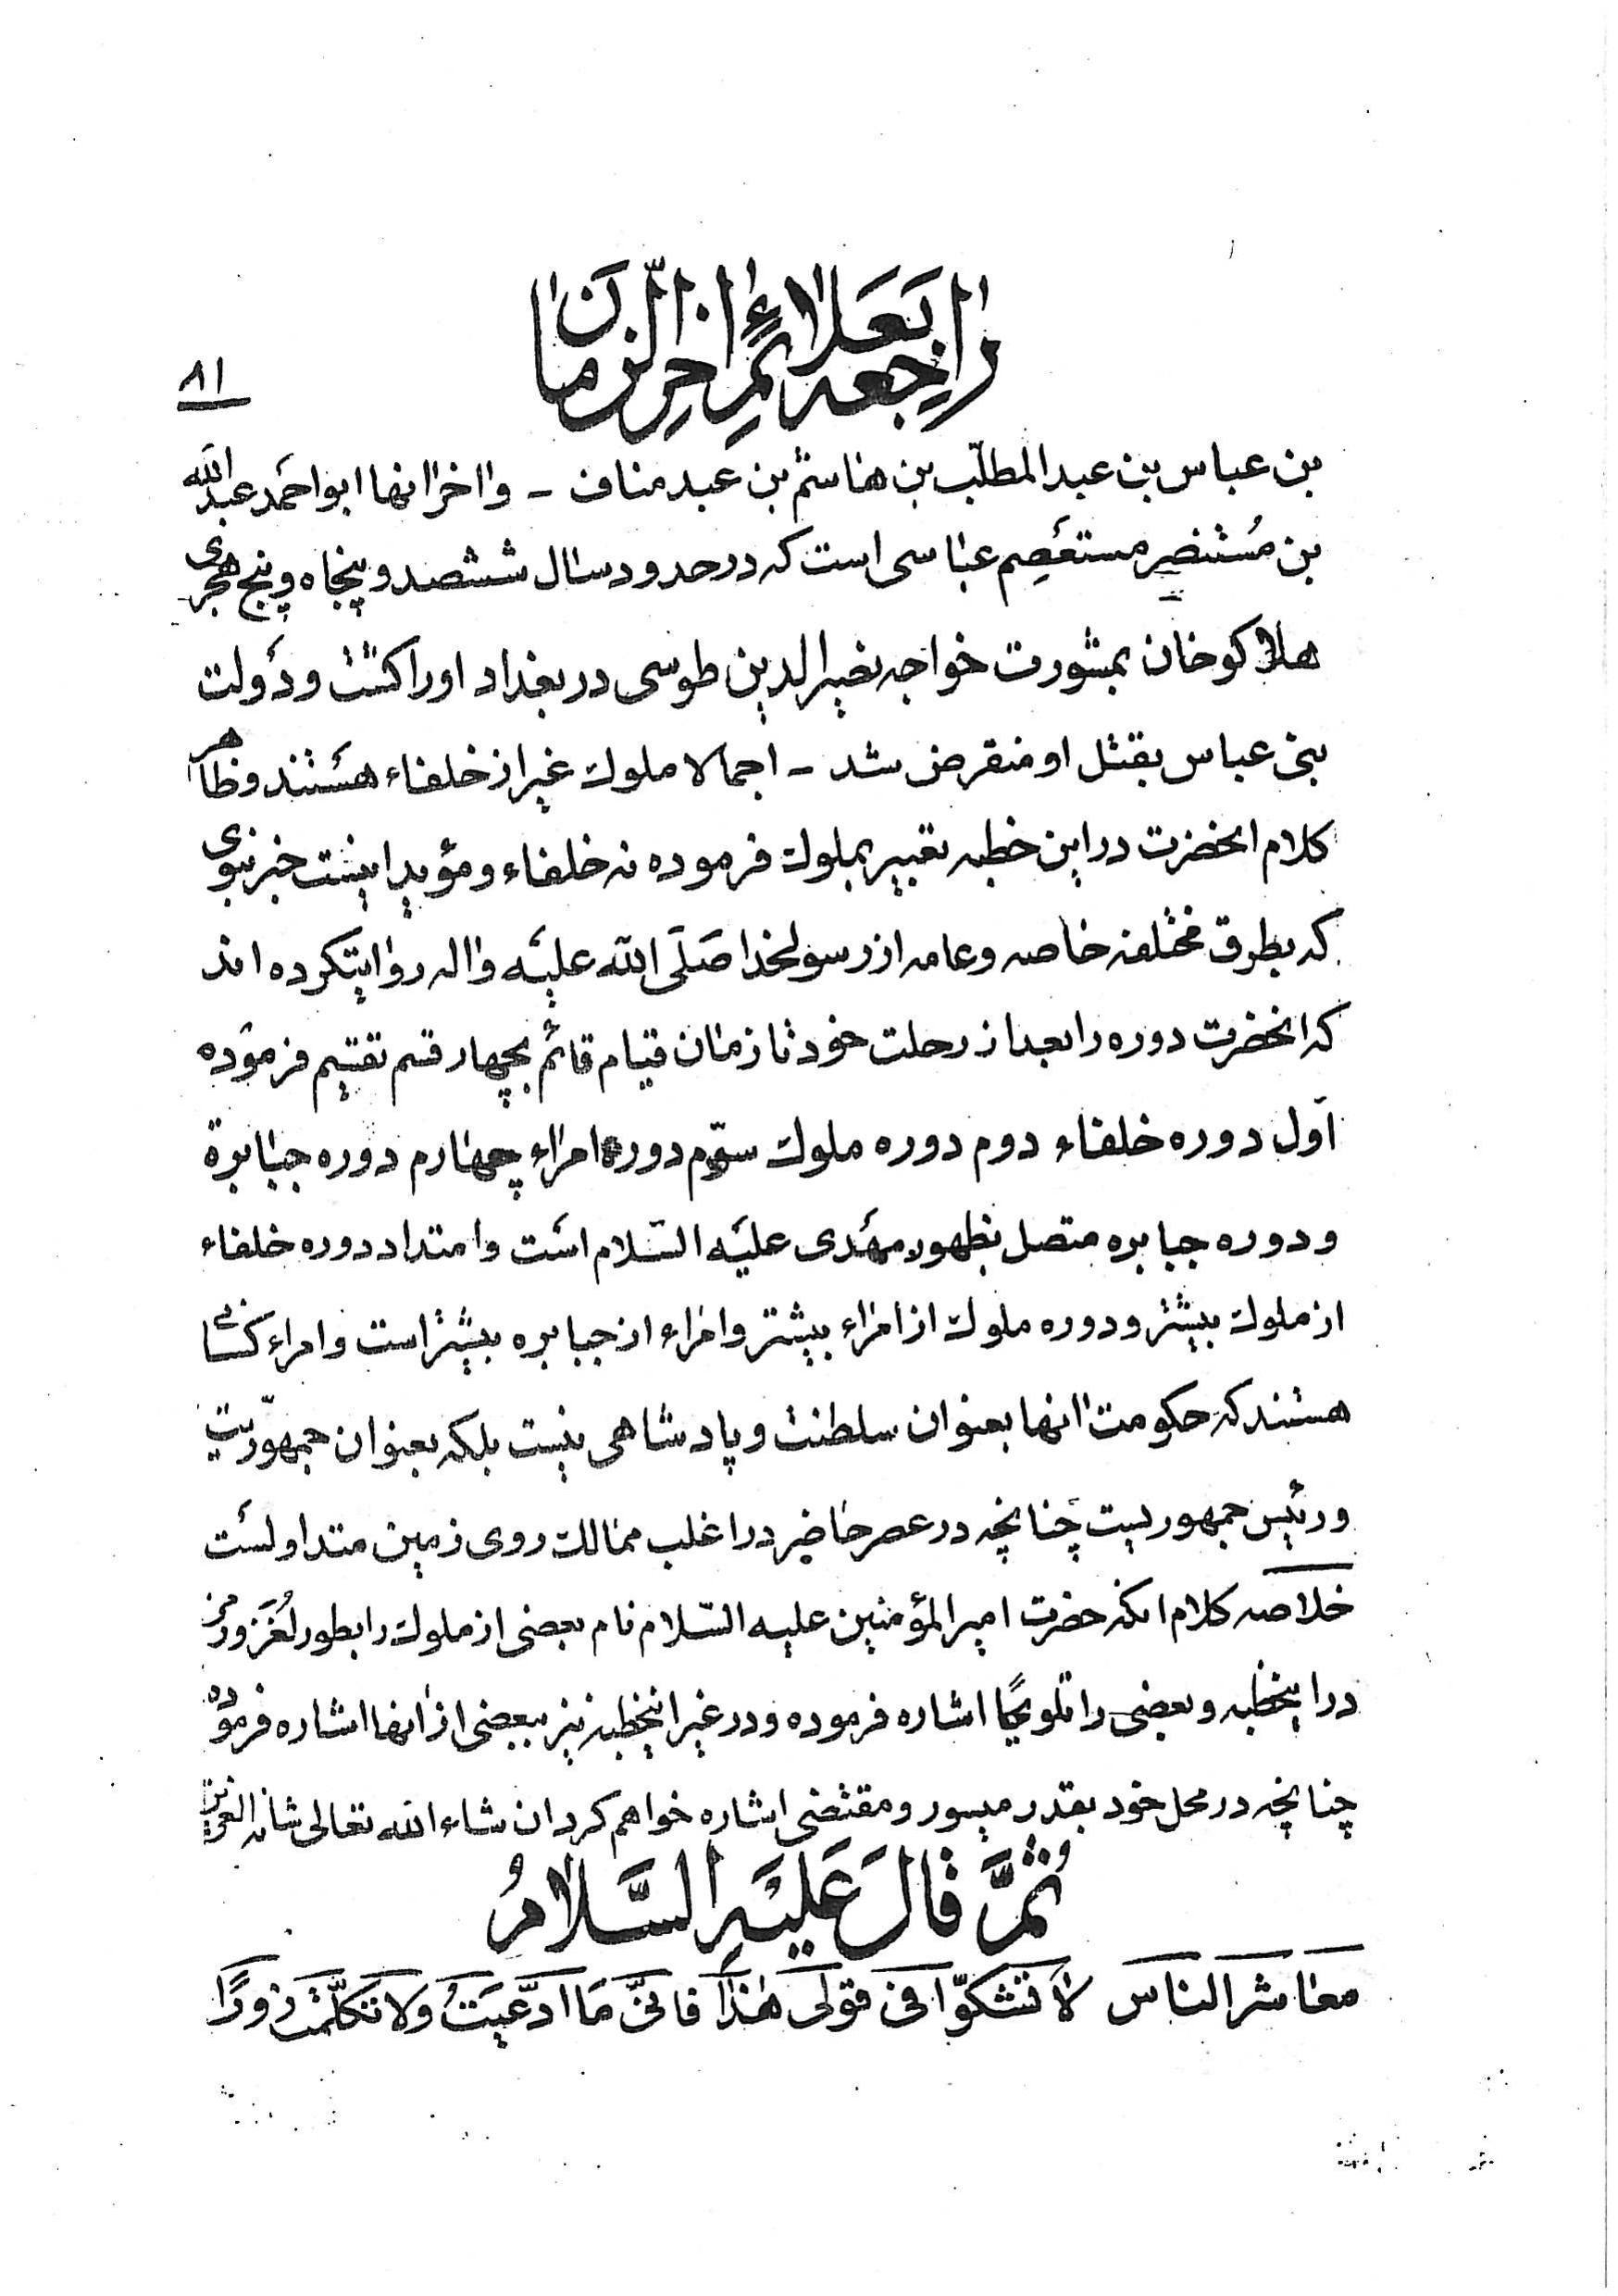 راجعه بعلائم اخر الزمان
۸۱
بن عباس بن عبدالمطلّب بن هاشم بن عبد مناف - واخر انها ابواحمد عبدالله
بن مُستنصر مستعصِم عباسی است که در حدود سال ششصد و پنجاه و پنج هجری
هلاکوخان بمشورت خواجه نصیرالدین طوسی در بغداد اورا کشت و دولت
بنی عباس بقتل او منقرض شد - اجمالا ملوک غیر از خلفاء هستند و ظاهر
کلام انحضرت در این خطبه تعبیر بملوک فرموده نه خلفاء و مؤید اینست خبر نبوی
که بطرق مختلفه خاصه و عامه از رسولخدا صَلَی الله علیه واله روایتکرده اند
که انحضرت دوره را بعد از رحلت خود تا زمان قیام قائم بچهار قسم تقسیم فرموده
اول دوره خلفاء دوم دوره ملوک سوّم دوره امراء چهارم دوره جبابرة
و دوره جبابره متصل بظهور مهدی علیه السّلام است وامتداد دوره خلفاء
از ملوک بیشتر و دوره ملوک از امراء بیشتر و امراء از جبابره بیشتر است و امراء کسانی
هستند که حکومت انها بعنوان سلطنت و پادشاهی نیست بلکه بعنوان جمهوریّت
و رئیس جمهوریست چنانچه در عصر حاضر در اغلب ممالک روی زمین متداولست
خلاصه کلام انکه حضرت امیرالمؤمنین علیه السّلام نام بعضی از ملوک را بطور لُغَز و رمز
در اینخطبه و بعضی را تلویحًا اشاره فرموده و در غیر اینخطبه نیز ببعضی از انها اشاره فرموده
چنانچه در محل خود بقدر میسور و مقتضی اشاره خواهم کرد ان شاء الله تعالی شانه العزیز
ثُمَّ قالَ عَلَیْهِ السَّلامُ
معاشر الناس لا تشکّوا فی قولی هٰذا فانّی مَا ادّعیتُ ولا تکلّمت زورًا